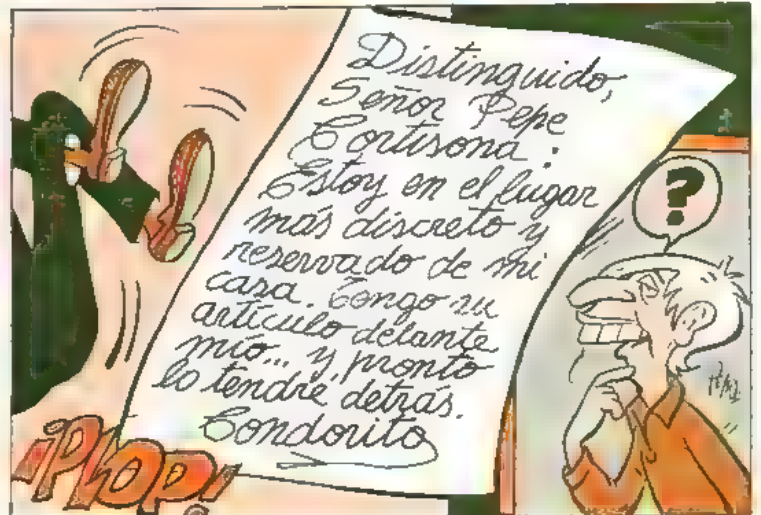 Distinguido,
Señor Pepe
Cortisona:
Estoy en el lugar
más discreto y
reservado de mi
casa. Tengo su
artículo delante
mío... y pronto
lo tendré detrás.
Condorito
¡PLOP!
?